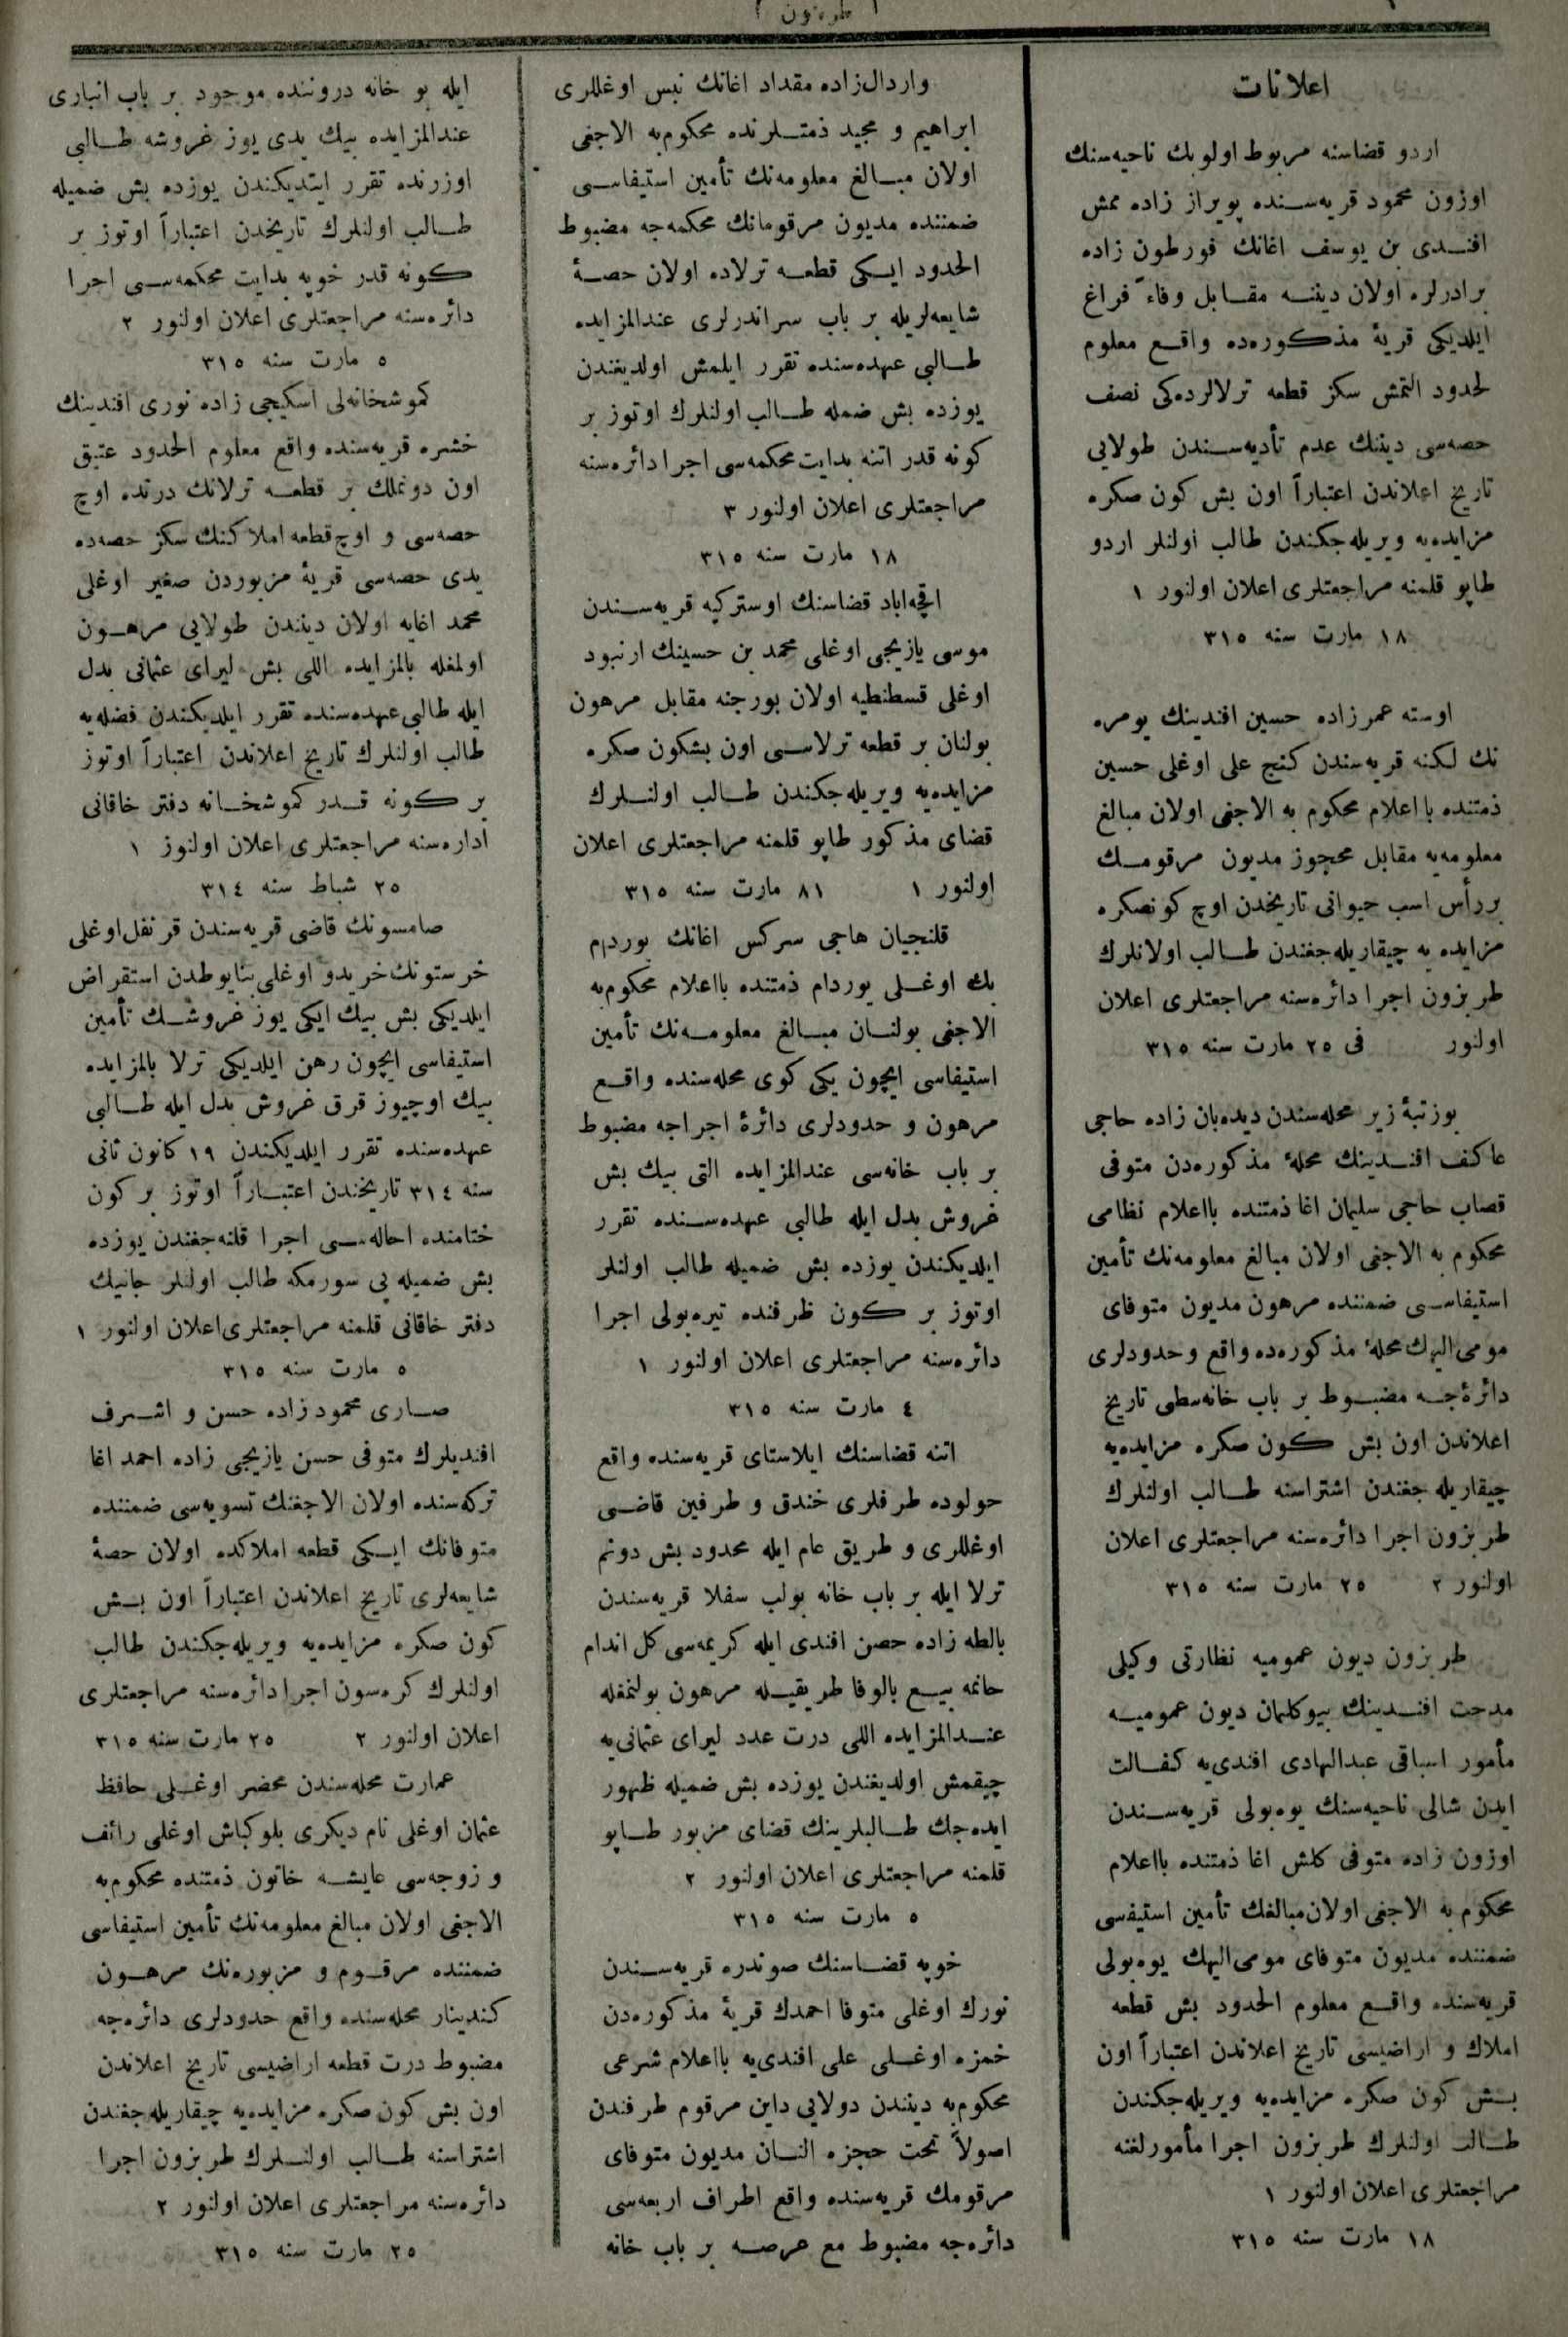 طربزون
اعلانات
اردو قضاسنه مربوط اولوبك ناحیه‌سنك
اوزون محمود قریه‌سنده پویراز زاده ممش
افندی بن یوسف اغانك فورطون زاده
برادرلره اولان دیننه مقابل وفاءً فراغ
ایلدیكی قریهٔ مذكوره‌ده واقع معلوم
لحدود التمش سكز قطعه ترلالرده‌كی نصف
حصه‌سی دیننك عدم تأدیه‌سندن طولایی
تاریخ اعلاندن اعتباراً اون بش كون صكره
مزایده‌یه ویریله‌جكندن طالب اولنلر اردو
طاپو قلمنه مراجعتلری اعلان اولنور ١
١٨ مارت سنه ٣١٥
اوسته عمرزاده حسین افندینك یومره
نك لكنه قریه‌سندن كنج علی اوغلی حسین
ذمتنده بااعلام محكوم به الاجغی اولان مبالغ
معلومه‌یه مقابل محجوز مدیون مرقومك
بررأس اسب حیوانی تاریخدن اوچ كونصكره
مزایده یه چیقاریله‌جغندن طالب اولانلرك
طربزون اجرا دائره‌سنه مراجعتلری اعلان
اولنور فی ٢٥ مارت سنه ٣١٥
بوزتپهٔ زیر محله‌سندن دیده‌بان زاده حاجی
عاكف افندینك محلهٔ مذكوره‌دن متوفی
قصاب حاجی سلیمان اغا ذمتنده بااعلام نظامی
محكوم به الاجغی اولان مبالغ معلومه‌نك تأمین
استیفاسی ضمننده مرهون مدیون متوفای
مومی‌الیهك محلهٔ مذكوره‌ده واقع وحدودلری
دائره‌جه مضبوط بر باب خانه‌سطی تاریخ
اعلاندن اون بش كون صكره مزایده‌یه
چیقاریله جغندن اشتراسنه طالب اولنلرك
طربزون اجرا دائره‌سنه مراجعتلری اعلان
اولنور ٢ ٢٥ مارت سنه ٣١٥
طربزون دیون عمومیه نظارتی وكیلی
مدحت افندینك بیوكلیمان دیون عمومیه
مأمور اسباقی عبدالهادی افندی‌یه كفالت
ایدن شالی ناحیه‌سنك یوه‌بولی قریه‌سندن
اوزون زاده متوفی كلش اغا ذمتنده بااعلام
محكوم به الاجغی اولان مبالغك تأمین استیفسی
ضمننده مدیون متوفای مومی‌الیهك یوه‌بولی
قریه‌سنده واقع معلوم الحدود بش قطعه
املاك و اراضیسی تاریخ اعلاندن اعتباراً اون
بش كون صكره مزایده‌یه ویریله‌جكندن
طالب اولنلرك طربزون اجرا مأمورلغنه
مراجعتلری اعلان اولنور ١
١٨ مارت سنه ٣١٥
واردال‌زاده مقداد اغانك نبس اوغللری
ابراهیم و مجید ذمتلرنده محكوم‌به الاجغی
اولان مبالغ معلومه‌نك تأمین استیفاسی
ضمننده مدیون مرقومانك محكمه‌جه مضبوط
الحدود ایكی قطعه ترلاده اولان حصهٔ
شایعه‌لریله بر باب سراندرلری عندالمزایده
طالبی عهده‌سنده تقرر ایلمش اولدیغندن
یوزده بش ضمله طالب اولنلرك اوتوز بر
كونه قدر اتنه بدایت محكمه‌سی اجرا دائره‌سنه
مراجعتلری اعلان اولنور ٣
١٨ مارت سنه ٣١٥
اقچه‌اباد قضاسنك اوستركیه قریه‌سندن
موسی یازیجی اوغلی محمد بن حسینك ارنبود
اوغلی قسطنطیه اولان بورجنه مقابل مرهون
بولنان بر قطعه ترلاسی اون بشكون صكره
مزایده‌یه ویریله‌جكندن طالب اولنلرك
قضای مذكور طاپو قلمنه مراجعتلری اعلان
اولنور ١ ٨١ مارت سنه ٣١٥
قلنجیان هاجی سركس اغانك بوردام
بك اوغلی بوردام ذمتنده بااعلام محكوم‌به
الاجغی بولنان مبالغ معلومه‌نك تأمین
استیفاسی ایچون یكی كوی محله‌سنده واقع
مرهون و حدودلری دائرهٔ اجراجه مضبوط
بر باب خانه‌سی عندالمزایده التی بیك بش
غروش بدل ایله طالبی عهده‌سنده تقرر
ایلدیكندن یوزده بش ضمیله طالب اولنلر
اوتوز بر كون ظرفنده تیره‌بولی اجرا
دائره‌سنه مراجعتلری اعلان اولنور ١
٤ مارت سنه ٣١٥
اتنه قضاسنك ایلاستای قریه‌سنده واقع
حولوده طرفلری خندق و طرفین قاضی
اوغللری و طریق عام ایله محدود بش دونم
ترلا ایله بر باب خانه بولب سفلا قریه‌سندن
بالطه زاده حصن افندی ایله كریمه‌سی كل اندام
حانمه بیع بالوفا طریقیله مرهون بولنمغله
عندالمزایده اللی درت عدد لیرای عثمانی‌یه
چیقمش اولدیغندن یوزده بش ضمیله ظهور
ایده‌جك طالبلرینك قضای مزبور طاپو
قلمنه مراجعتلری اعلان اولنور ٢
٥ مارت سنه ٣١٥
خوپه قضاسنك صوندره قریه‌سندن
نورك اوغلی متوفا احمدك قریهٔ مذكوره‌دن
خمزه اوغلی علی افندی‌یه بااعلام شرعی
محكوم‌به دیندن دولایی داین مرقوم طرفندن
اصولاً تحت حجزه النان مدیون متوفای
مرقومك قریه‌سنده واقع اطراف اربعه‌سی
دائره‌جه مضبوط مع عرصه بر باب خانه
ایله بو خانه دروننده موجود بر باب انباری
عندالمزایده بیك یدی یوز غروشه طالبی
اوزرنده تقرر ایتدیكندن یوزده بش ضمیله
طالب اولنلرك تاریخدن اعتباراً اوتوز بر
كونه قدر خوپه بدایت محكمه‌سی اجرا
دائره‌سنه مراجعتلری اعلان اولنور ٢
٥ مارت سنه ٣١٥
كموشخانه‌لی اسكیجی زاده نوری افندینك
خشره قریه‌سنده واقع معلوم الحدود عتیق
اون دونملك بر قطعه ترلانك درتده اوچ
حصه‌سی و اوچ قطعه املاكنك سكز حصه‌ده
یدی حصه‌سی قریهٔ مزبوردن صغیر اوغلی
محمد اغایه اولان دیندن طولایی مرهون
اولمغله بالمزایده اللی بش لیرای عثمانی بدل
ایله طالبی عهده‌سنده تقرر ایلدیكندن فضله‌یه
طالب اولنلرك تاریخ اعلاندن اعتباراً اوتوز
بر كونه قدر كموشخانه دفتر خاقانی
اداره‌سنه مراجعتلری اعلان اولنوز ١
٢٥ شباط سنه ٣١٤
صامسونك قاضی قریه‌سندن قرنفل‌اوغلی
خرستونك خریدو اوغلی بنایوطدن استقراض
ایلدیكی بش بیك ایكی یوز غروشك تأمین
استیفاسی ایچون رهن ایلدیكی ترلا بالمزایده
بیك اوچیوز قرق غروش بدل ایله طالبی
عهده‌سنده تقرر ایلدیكندن ١٩ كانون ثانی
سنه ٣١٤ تاریخندن اعتباراً اوتوز بر كون
ختامنده احاله‌سی اجرا قلنه‌جغندن یوزده
بش ضمیله پی سورمكه طالب اولنلر جانیك
دفتر خاقانی قلمنه مراجعتلری اعلان اولنور ١
٥ مارت سنه ٣١٥
صاری محمود زاده حسن و اشرف
افندیلرك متوفی حسن یازیجی زاده احمد اغا
تركه‌سنده اولان الاجغنك تسویه‌سی ضمننده
متوفانك ایكی قطعه املاكده اولان حصهٔ
شایعه‌لری تاریخ اعلاندن اعتباراً اون بش
كون صكره مزایده‌یه ویریله‌جكندن طالب
اولنلرك كره‌سون اجرا دائره‌سنه مراجعتلری
اعلان اولنور ٢ ٢٥ مارت سنه ٣١٥
عمارت محله‌سندن محضر اوغلی حافظ
عثمان اوغلی نام دیكری بلوكباش اوغلی رائف
و زوجه‌سی عایشه خاتون ذمتنده محكوم‌به
الاجغی اولان مبالغ معلومه‌نك تأمین استیفاسی
ضمننده مرقوم و مزبوره‌نك مرهون
كندینار محله‌سنده واقع حدودلری دائره‌جه
مضبوط درت قطعه اراضیسی تاریخ اعلاندن
اون بش كون صكره مزایده‌یه چیقاریله‌جغندن
اشتراسنه طالب اولنلرك طربزون اجرا
دائره‌سنه مراجعتلری اعلان اولنور ٢
٢٥ مارت سنه ٣١٥